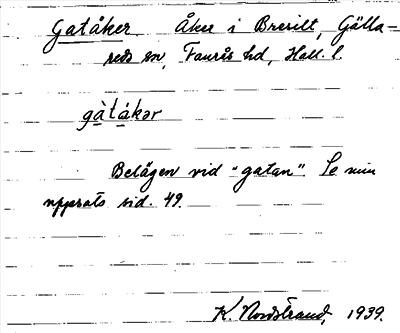 Gatåker Åker i Breared, Gälla=
reds sn, Faurås hd, Hall. l.
gàtákər
Belägen vid "gatan". Se min
uppsats sid. 49.
K. Nordstrand, 1939.